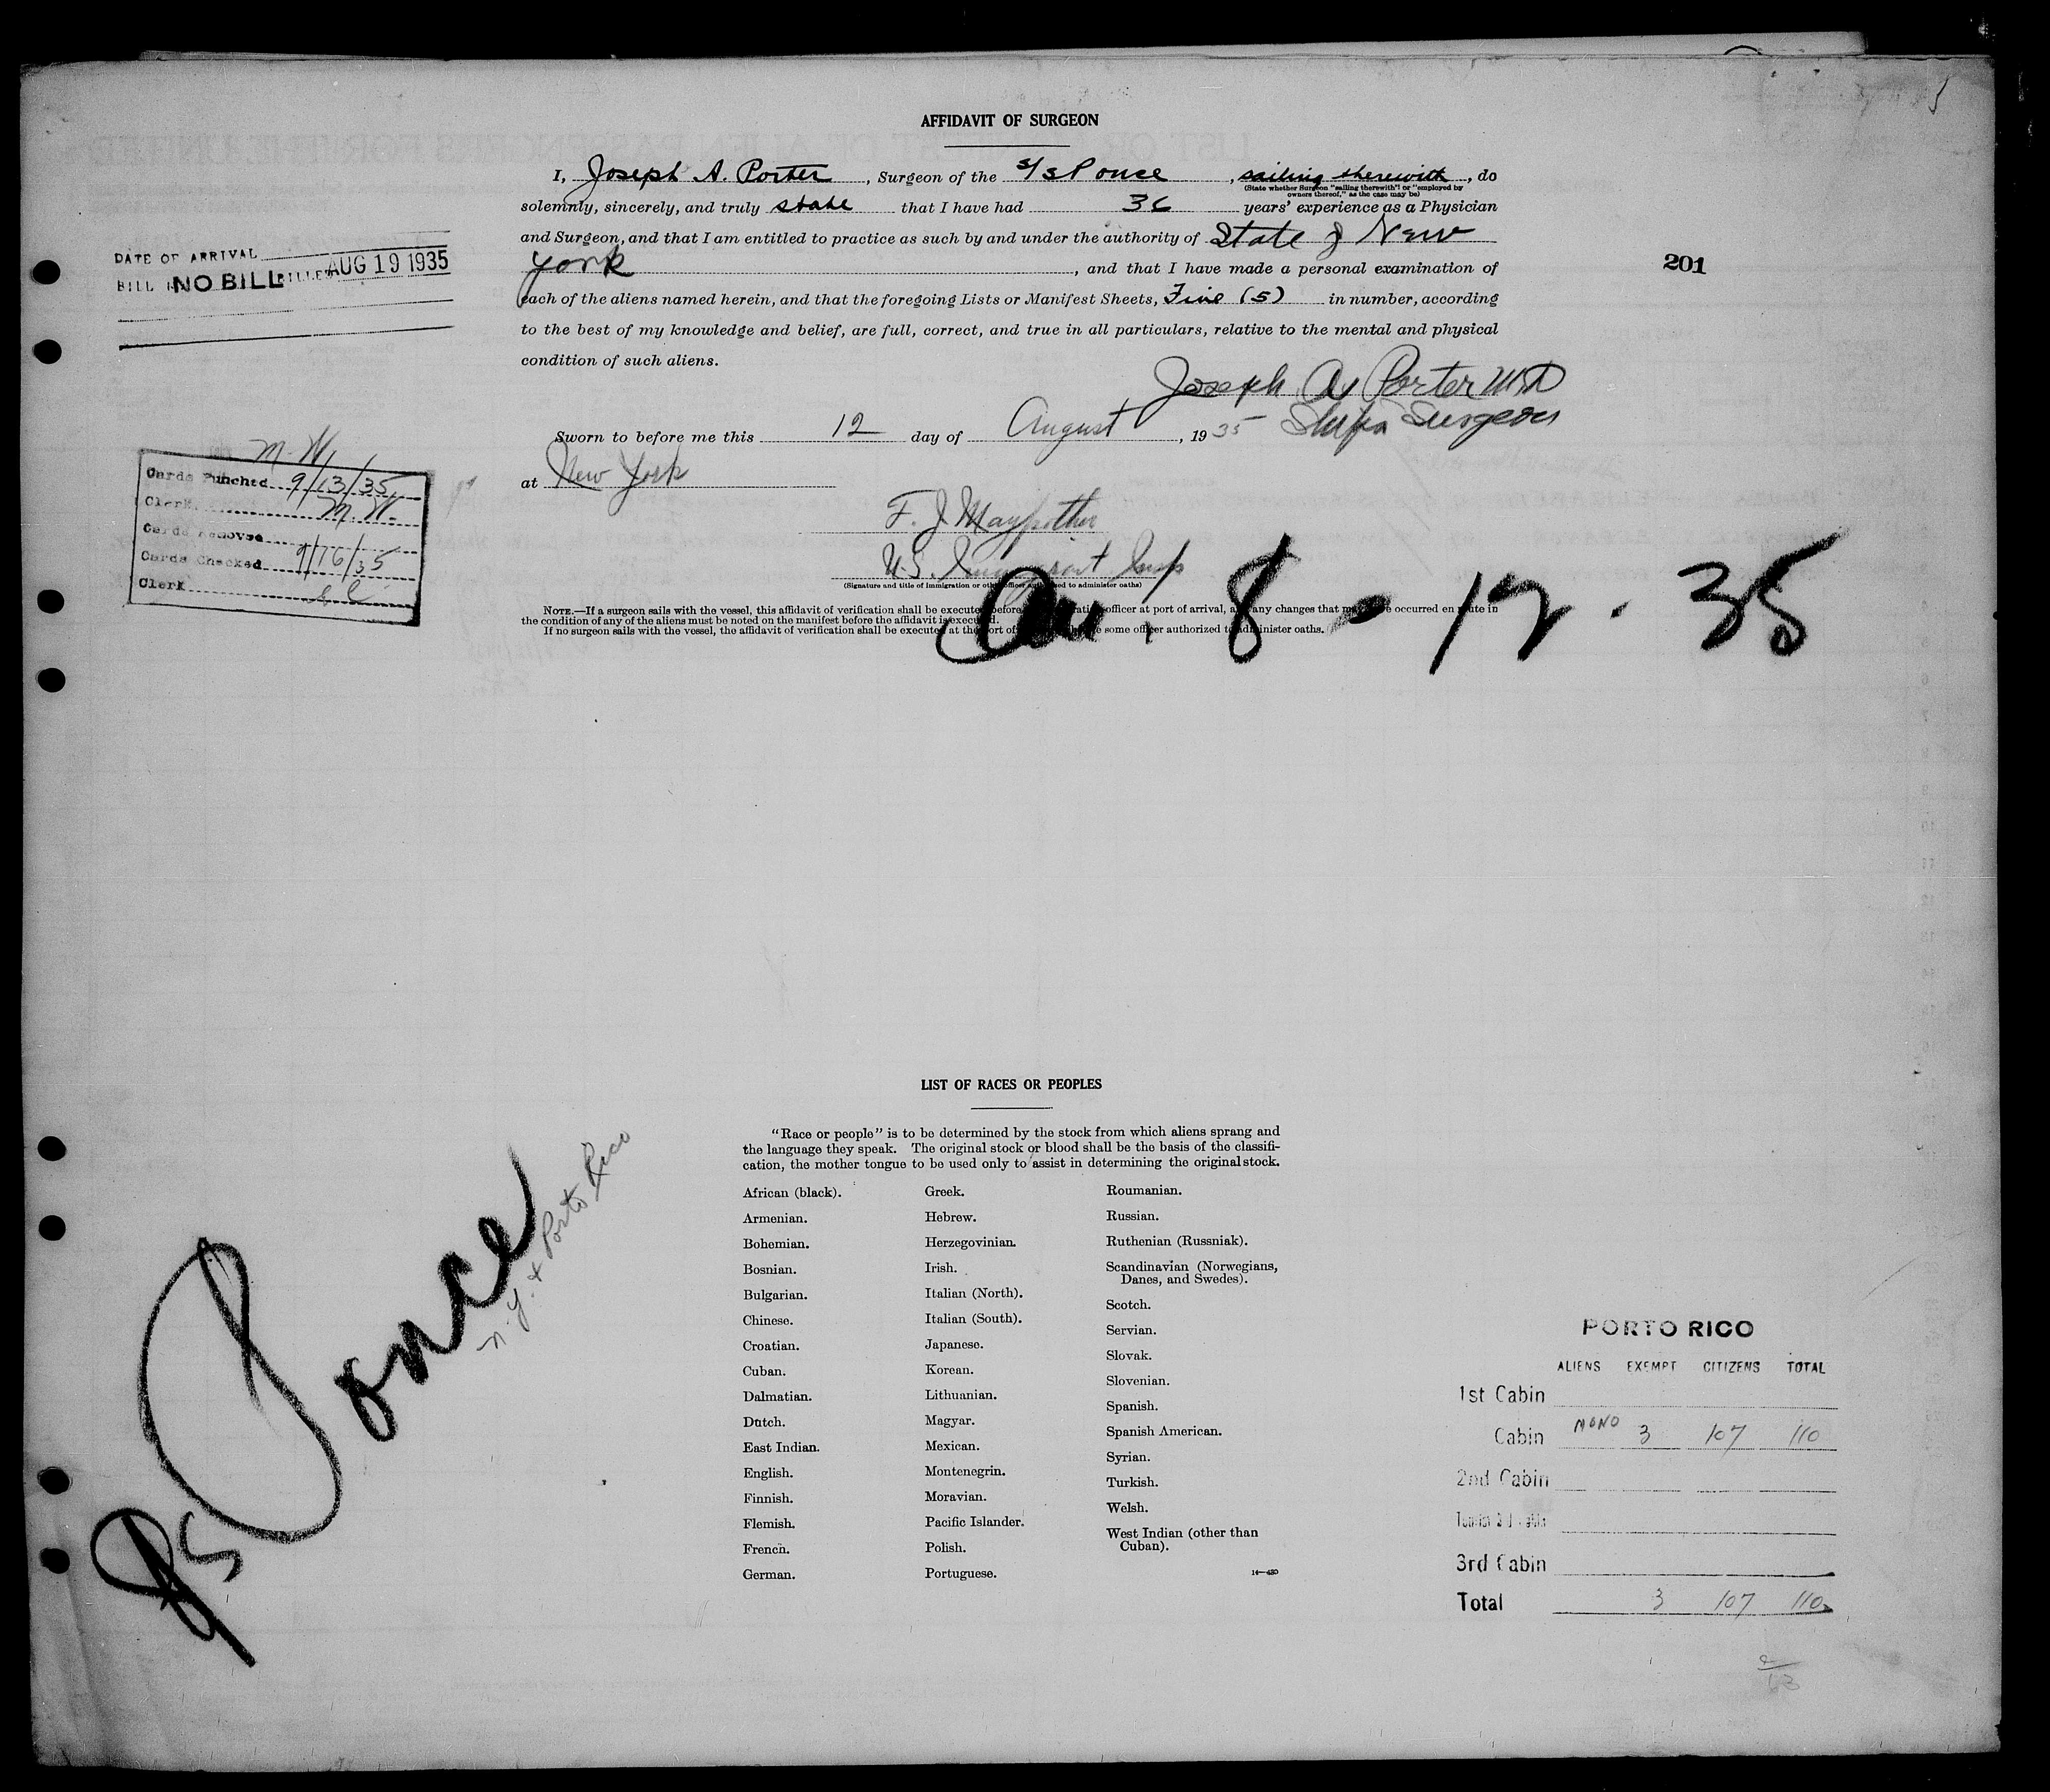 AFFIDAVIT OF SURGEON
I, Joseph A. Porter, Surgeon of the S/S Ponce, sailing therewith, do
(State whether Surgeon "sailing therewith" or "employed by
owners thereof," as the case may be)
solemnly, sincerely, and truly state that I have had years' experience as a Physician
and Surgeon, and that I am entitled to practice as such by and under the authority of State of New
York, and that I have made a personal examination of
each of the aliens named herein, and that the foregoing Lists or Manifest Sheets, Five (5) in number, according
to the best of my knowledge and belief, are full, correct, and true in all particulars, relative to the mental and physical
condition of such aliens.
Joseph A Porter MD
Ship's Surgeon
Sworn to before me this 12 day of August, 1935
at New York
U.S. Immigrant Insp
(Signature and title of immigration or other officer authorized to administer oaths)
NOTE.—If a surgeon sails with the vessel, this affidavit of verification shall be executed before officer at port of arrival, and any changes that may have occurred en route in
the condition of any of the aliens must be noted on the manifest before the affidavit is executed.
If no surgeon sails with the vessel, the affidavit of verification shall be executed at the port of some officer authorized to administer oaths.
8 - 12 - 35
DATE OF ARRIVAL
BILL NO BILL BILLED AUG 19 1935
201
M. W.
Cards Punched 9/13/35
Clerk M. W.
Cards Removed
Cards Checked 9/16/35
Clerk
LIST OF RACES OR PEOPLES
"Race or people" is to be determined by the stock from which aliens sprang and
the language they speak. The original stock or blood shall be the basis of the classifi-
cation, the mother tongue to be used only to assist in determining the original stock.
African (black).
Armenian.
Bohemian.
Bosnian.
Bulgarian.
Chinese.
Croatian.
Cuban.
Dalmatian.
Dutch.
East Indian.
English.
Finnish.
Flemish.
French.
German.
Greek.
Hebrew.
Herzegovinian.
Irish.
Italian (North).
Italian (South).
Japanese.
Korean.
Lithuanian.
Magyar.
Mexican.
Montenegrin.
Moravian.
Pacific Islander.
Polish.
Portuguese.
Roumanian.
Russian.
Ruthenian (Russniak).
Scandinavian (Norwegians,
Danes, and Swedes).
Scotch.
Servian.
Slovak.
Slovenian.
Spanish.
Spanish American.
Syrian.
Turkish.
Welsh.
West Indian (other than
Cuban).
14—430
SS Ponce
N.Y. & Porto Rico
PORTO RICO
ALIENS EXEMPT CITIZENS TOTAL
1st Cabin
Cabin 3 107 110
2nd Cabin
3rd Cabin
Total 3 107 110